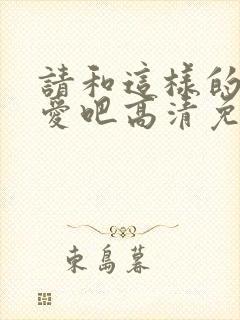 請和這樣的
愛吧高清免
東島暮